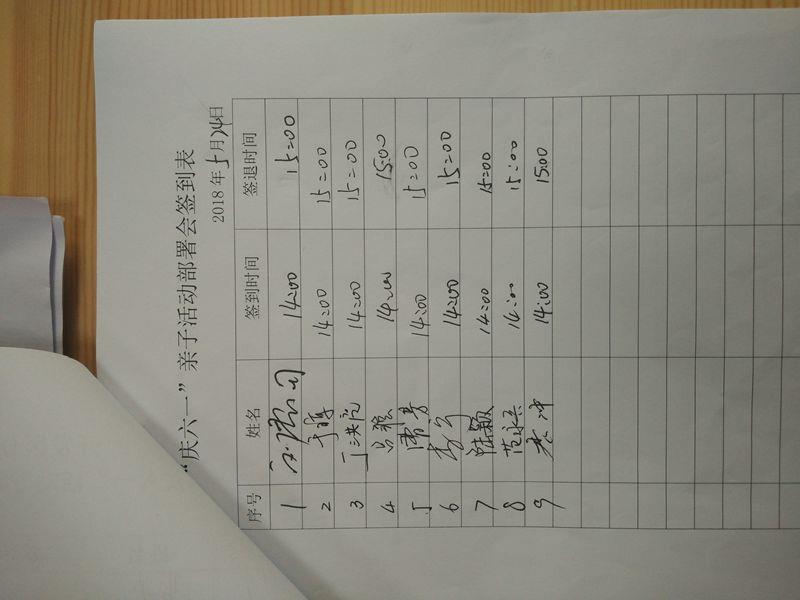 “庆六一”亲子活动部署会签到表
2018年5月24日
序号 姓名 签到时间 签退时间
1 14:00 15:00
2 于萍 14:00 15:00
3 丁洪亮 14:00 15:00
4 吕雅 14:00 15:00
5 14:00 15:00
6 李宁 14:00 15:00
7 陆颖 14:00 15:00
8 范永兵 14:00 15:00
9 李冲 14:00 15:00